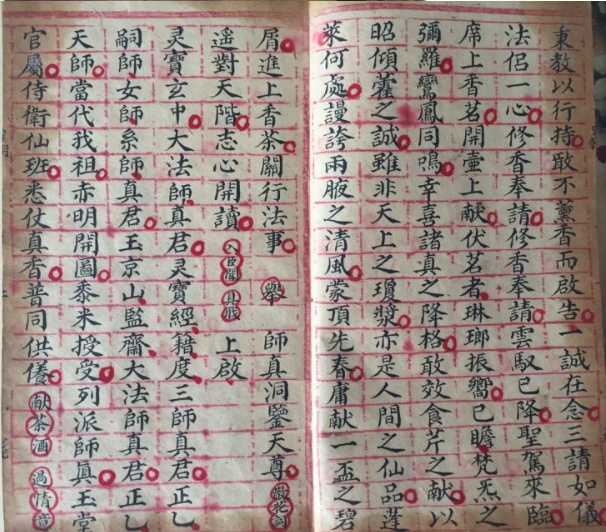 秉教以行持敢不薰香而啟告一誠在念三請如儀
法侶一心修香奉請修香奉請雲馭已降聖駕來臨
席上香茗開壷上献伏茗者琳瑯振嚮已瞻梵炁之
彌羅鸞鳳同鳴幸喜諸真之降格敢效食芹之献以
昭傾藿之誠雖非天上之瓊漿亦是人間之仙品蓬
萊何處謾誇兩腋之清風蒙頂先春庸献一盃之碧
屑進上香茶關行法事 舉 師真洞鑒天尊 散花詞
遥對天階志心開讀 入臣聞 具職 上啟
灵寶玄中大法師真君灵寶經籍度三師真君正乙
嗣師女師系師真君玉京山監齋大法師真君正乙
天師當代我祖赤明開圖黍米授受列派師真玉堂
官屬侍衛仙班悉仗真香普同供儀 献茶酒 過情音